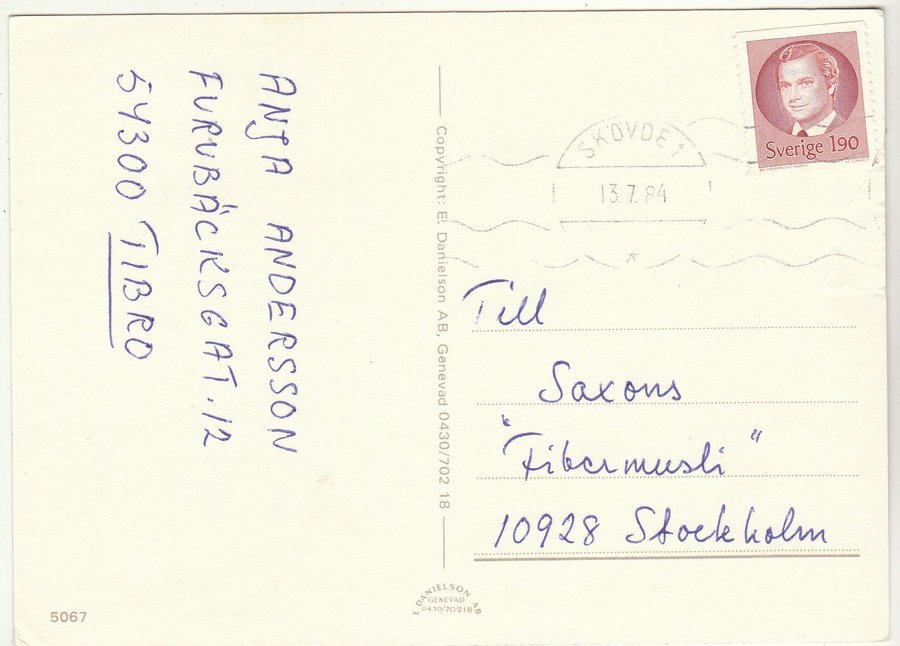 ANJA ANDERSSON
FURUBÄCKSGAT. 12
54300 TIBRO
Copyright: E. Danielson AB, Genevad 0430/702 18
Sverige 190
SKÖVDE 1
13.7.84
Till
Saxons
"Fibermusli"
10928 Stockholm
E. DANIELSON AB
GENEVAD
0430/70218
5067